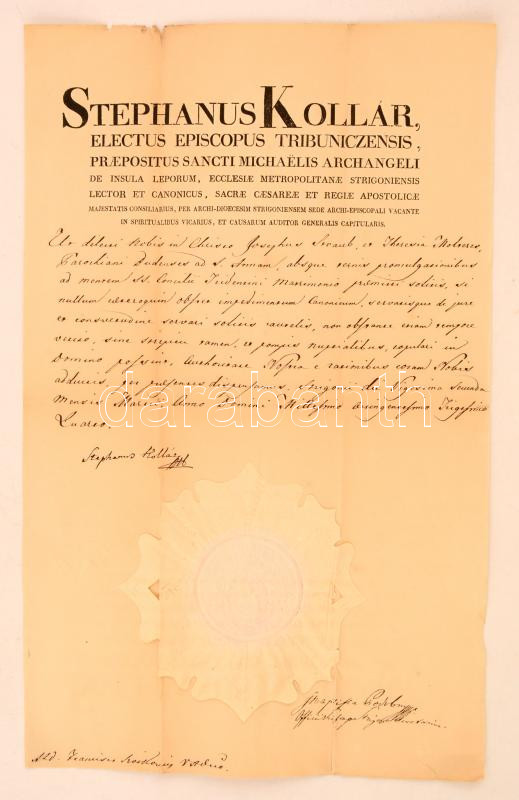 STEPHANUS KOLLÁR,
ELECTUS EPISCOPUS TRIBUNICZENSIS,
PRÆPOSITUS SANCTI MICHAËLIS ARCHANGELI
DE INSULA LEPORUM, ECCLESIÆ METROPOLITANÆ STRIGONIENSIS
LECTOR ET CANONICUS, SACRÆ CÆSAREÆ ET REGIÆ APOSTOLICÆ
MAJESTATIS CONSILIARIUS, PER ARCHI-DIOECESIM STRIGONIENSEM SEDE ARCHI-EPISCOPALI VACANTE
IN SPIRITUALIBUS VICARIUS, ET CAUSARUM AUDITOR GENERALIS CAPITULARIS.
Ut dilecti Nobis in Christo Josephus et Theresia
Parochiani Budenses ad S. Annam, absque ternis promulgationibus
ad mentem SS. Concilii Tridentini Matrimonio premitti solitis, si
nullum ceteroquin obstet impedimentum Canonicum, servatisque de jure
et consvetudine servari solitis cautelis, non obstante etiam tempore
vetito, sine strepitu tamen, et pompis nuptialibus, copulari in
Domino possint, Authoritate Nostra e rationibus coram Nobis
adductis, per præsentes dispensamus. Strigonii die Vigesima Secunda
Mensis Martii Anno Domini Millesimo Octingentesimo Trigesimo
Quarto.
darabanth
Stephanus Kollár